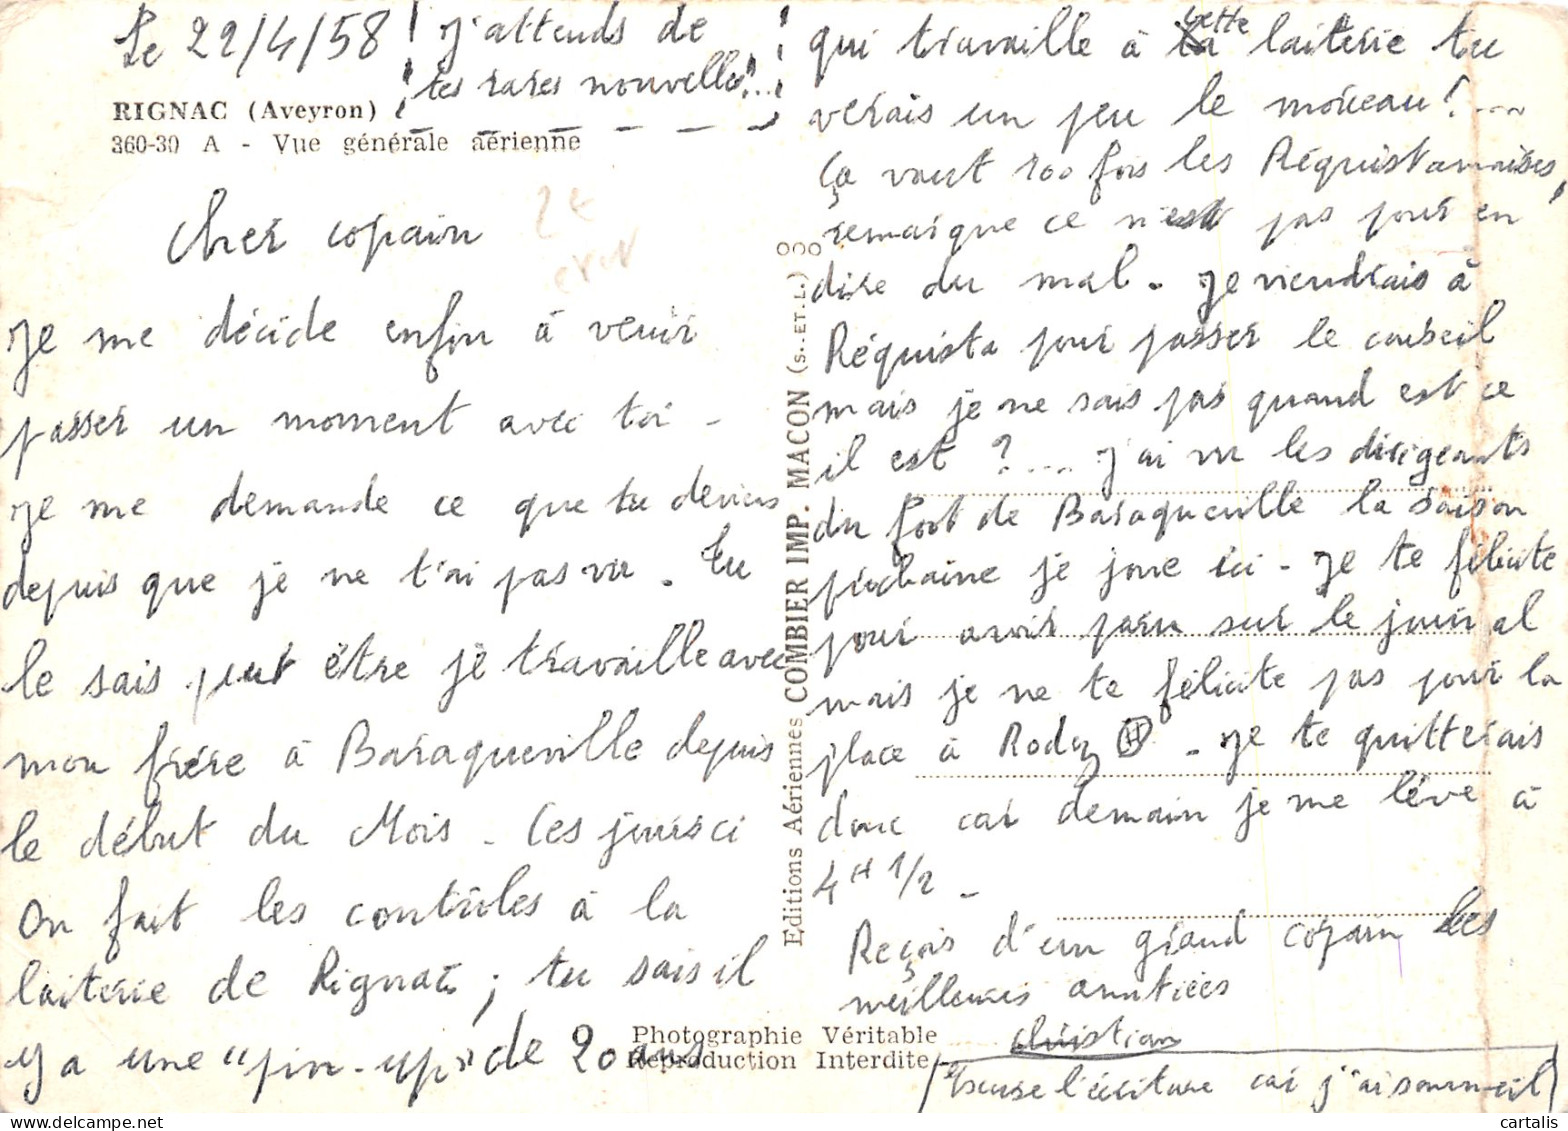 Le 22/4/58
J'attends de
tes rares nouvelles!...
RIGNAC (Aveyron)
360-30 A - Vue générale aérienne
Cher copain
Je me décide enfin à venir
passer un moment avec toi -
Je me demande ce que tu deviens
depuis que je ne t'ai pas vu. Tu
le sais peut être je travaille avec
mon frère à Baraqueville depuis
le début du Mois - Ces jours ci
On fait les contrôles à la
laiterie de Rignac ; tu sais il
y a une "pin-up" de 20 ans
Editions Aériennes COMBIER IMP. MACON (S.-ET-L.)
qui travaille à cette laiterie tu
verais un peu le morceau! ...
Ça vaut 100 fois les Réquistanaises,
remarque ce n'est pas pour en
dire du mal - Je viendrais à
Réquista pour passer le conseil
mais je ne sais pas quand est ce
il est ? .... J'ai vu les dirigeants
du foot de Baraqueville la saison
prochaine je joue ici - Je te félicite
pour avoir paru sur le journal
mais je ne te félicite pas pour la
place à Rodez - Je te quitterais
donc car demain je me lève à
4H 1/2 -
Reçois d'un grand copain les
meilleures amitiées
Christian
Photographie Véritable
Reproduction Interdite
(Excuse l'écriture car j'ai sommeil)
cartalis